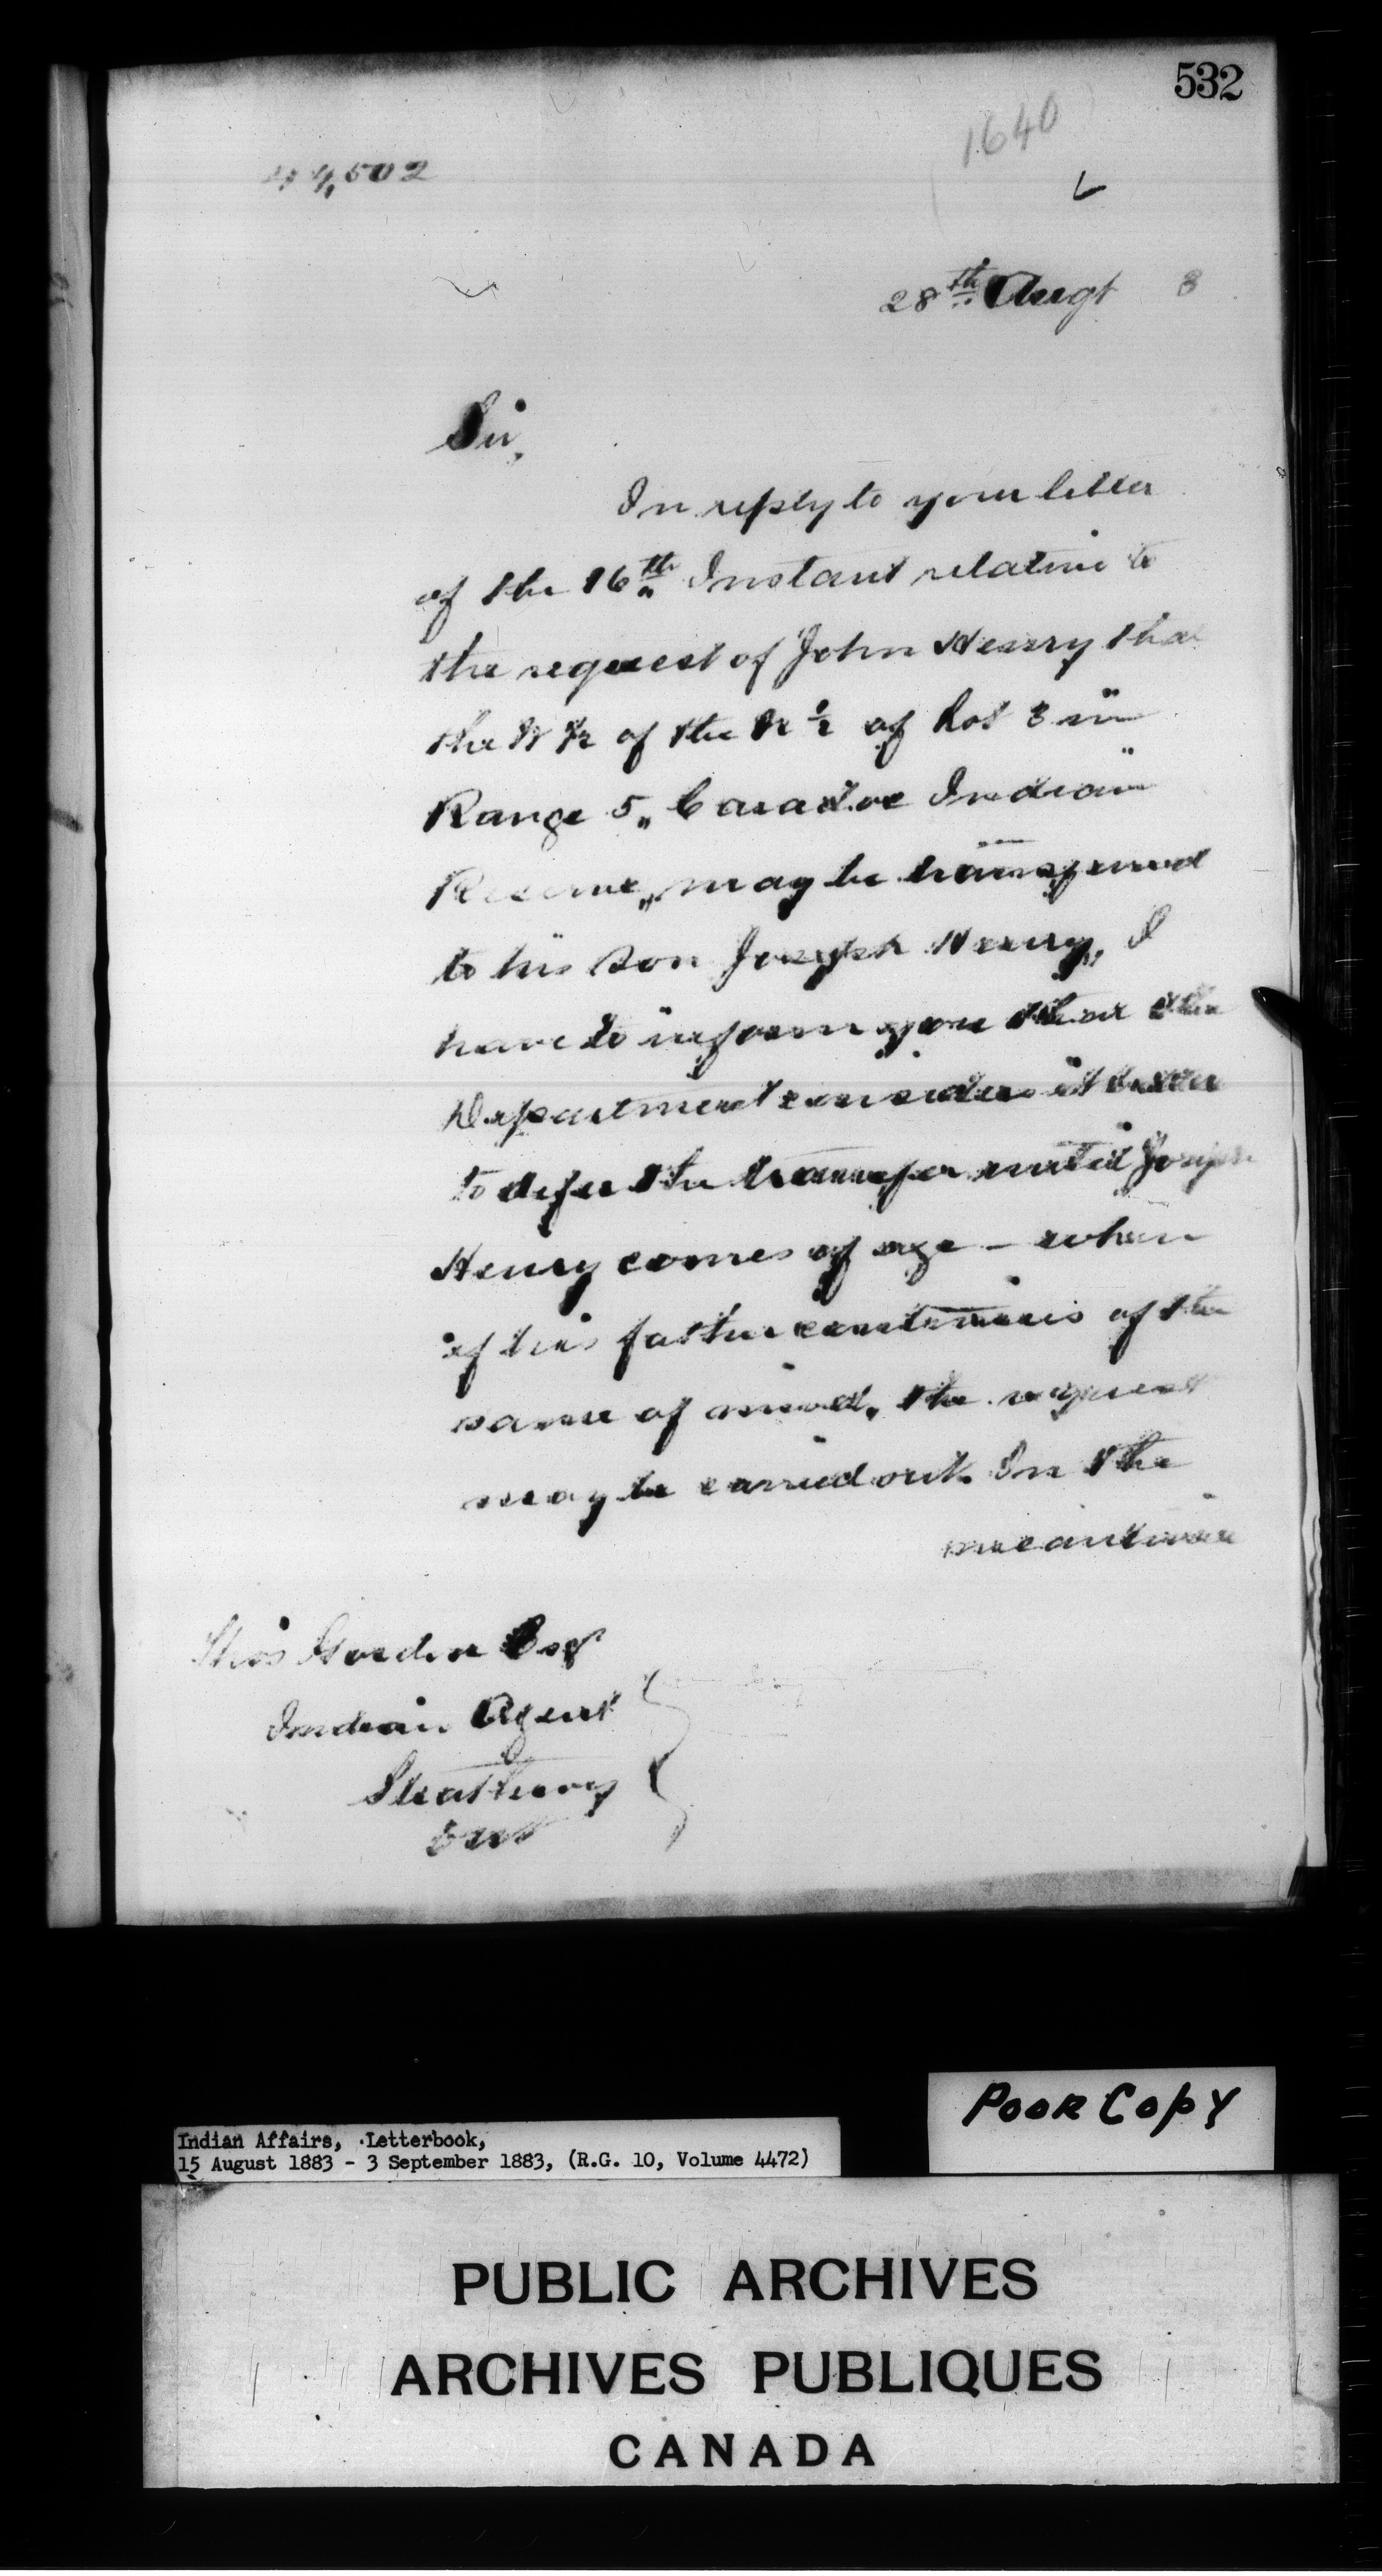 532
1640
28th Augt 3
Sir,
In reply to your letter
of the 16th Instant relative to
the request of John Henry that
the ½ of the N ½ of Lot 3 in
Range 5, Caradoc Indian
Reserve, may be transferred
to his son Joseph Henry, I
have to inform you that the
Department considers it better
to defer the transfer until Joseph
Henry comes of age - when
if his father continues of the
same of mind, the request
may be carried out. In the
meantime
Thos Gordon Esqr
Indian Agent
Strathroy
Ont
POOR COPY
Indian Affairs, Letterbook,
15 August 1883 - 3 September 1883, (R.G. 10, Volume 4472)
PUBLIC ARCHIVES
ARCHIVES PUBLIQUES
CANADA